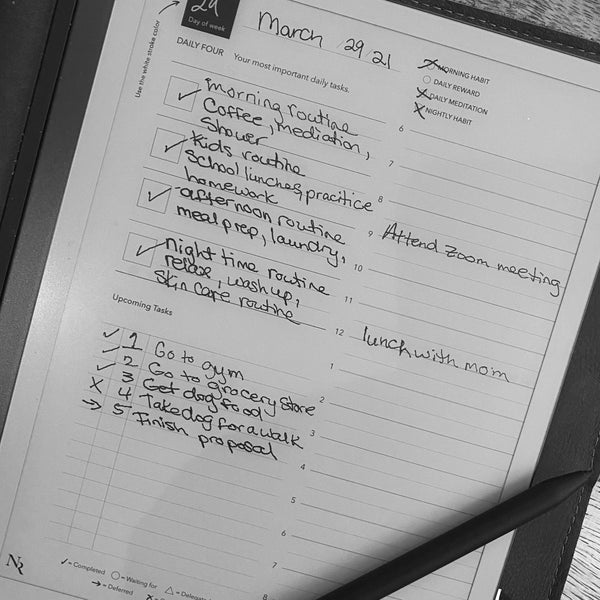 29
Day of week
Use the white stroke color
March 29 21
DAILY FOUR Your most important daily tasks.
MORNING HABIT
DAILY REWARD
DAILY MEDITATION
NIGHTLY HABIT
✓ morning routine
Coffee, mediation,
Shower
✓ Kids routine
School lunches, pracitice
homework
✓ afternoon routine
meal prep, laundry,
✓ night time routine
relax, wash up,
Skin care routine
Upcoming Tasks
✓ 1 Go to gym
✓ 2 Go to grocery store
✓ 3 Get dog food
X 4 Take dog for a walk
→ 5 Finish proposal
6
7
8
9 Attend zoom meeting
10
11
12 lunch with mom
1
2
3
4
5
6
7
8
✓= Completed ○= Waiting for △= Delegate
→= Deferred X=
NR